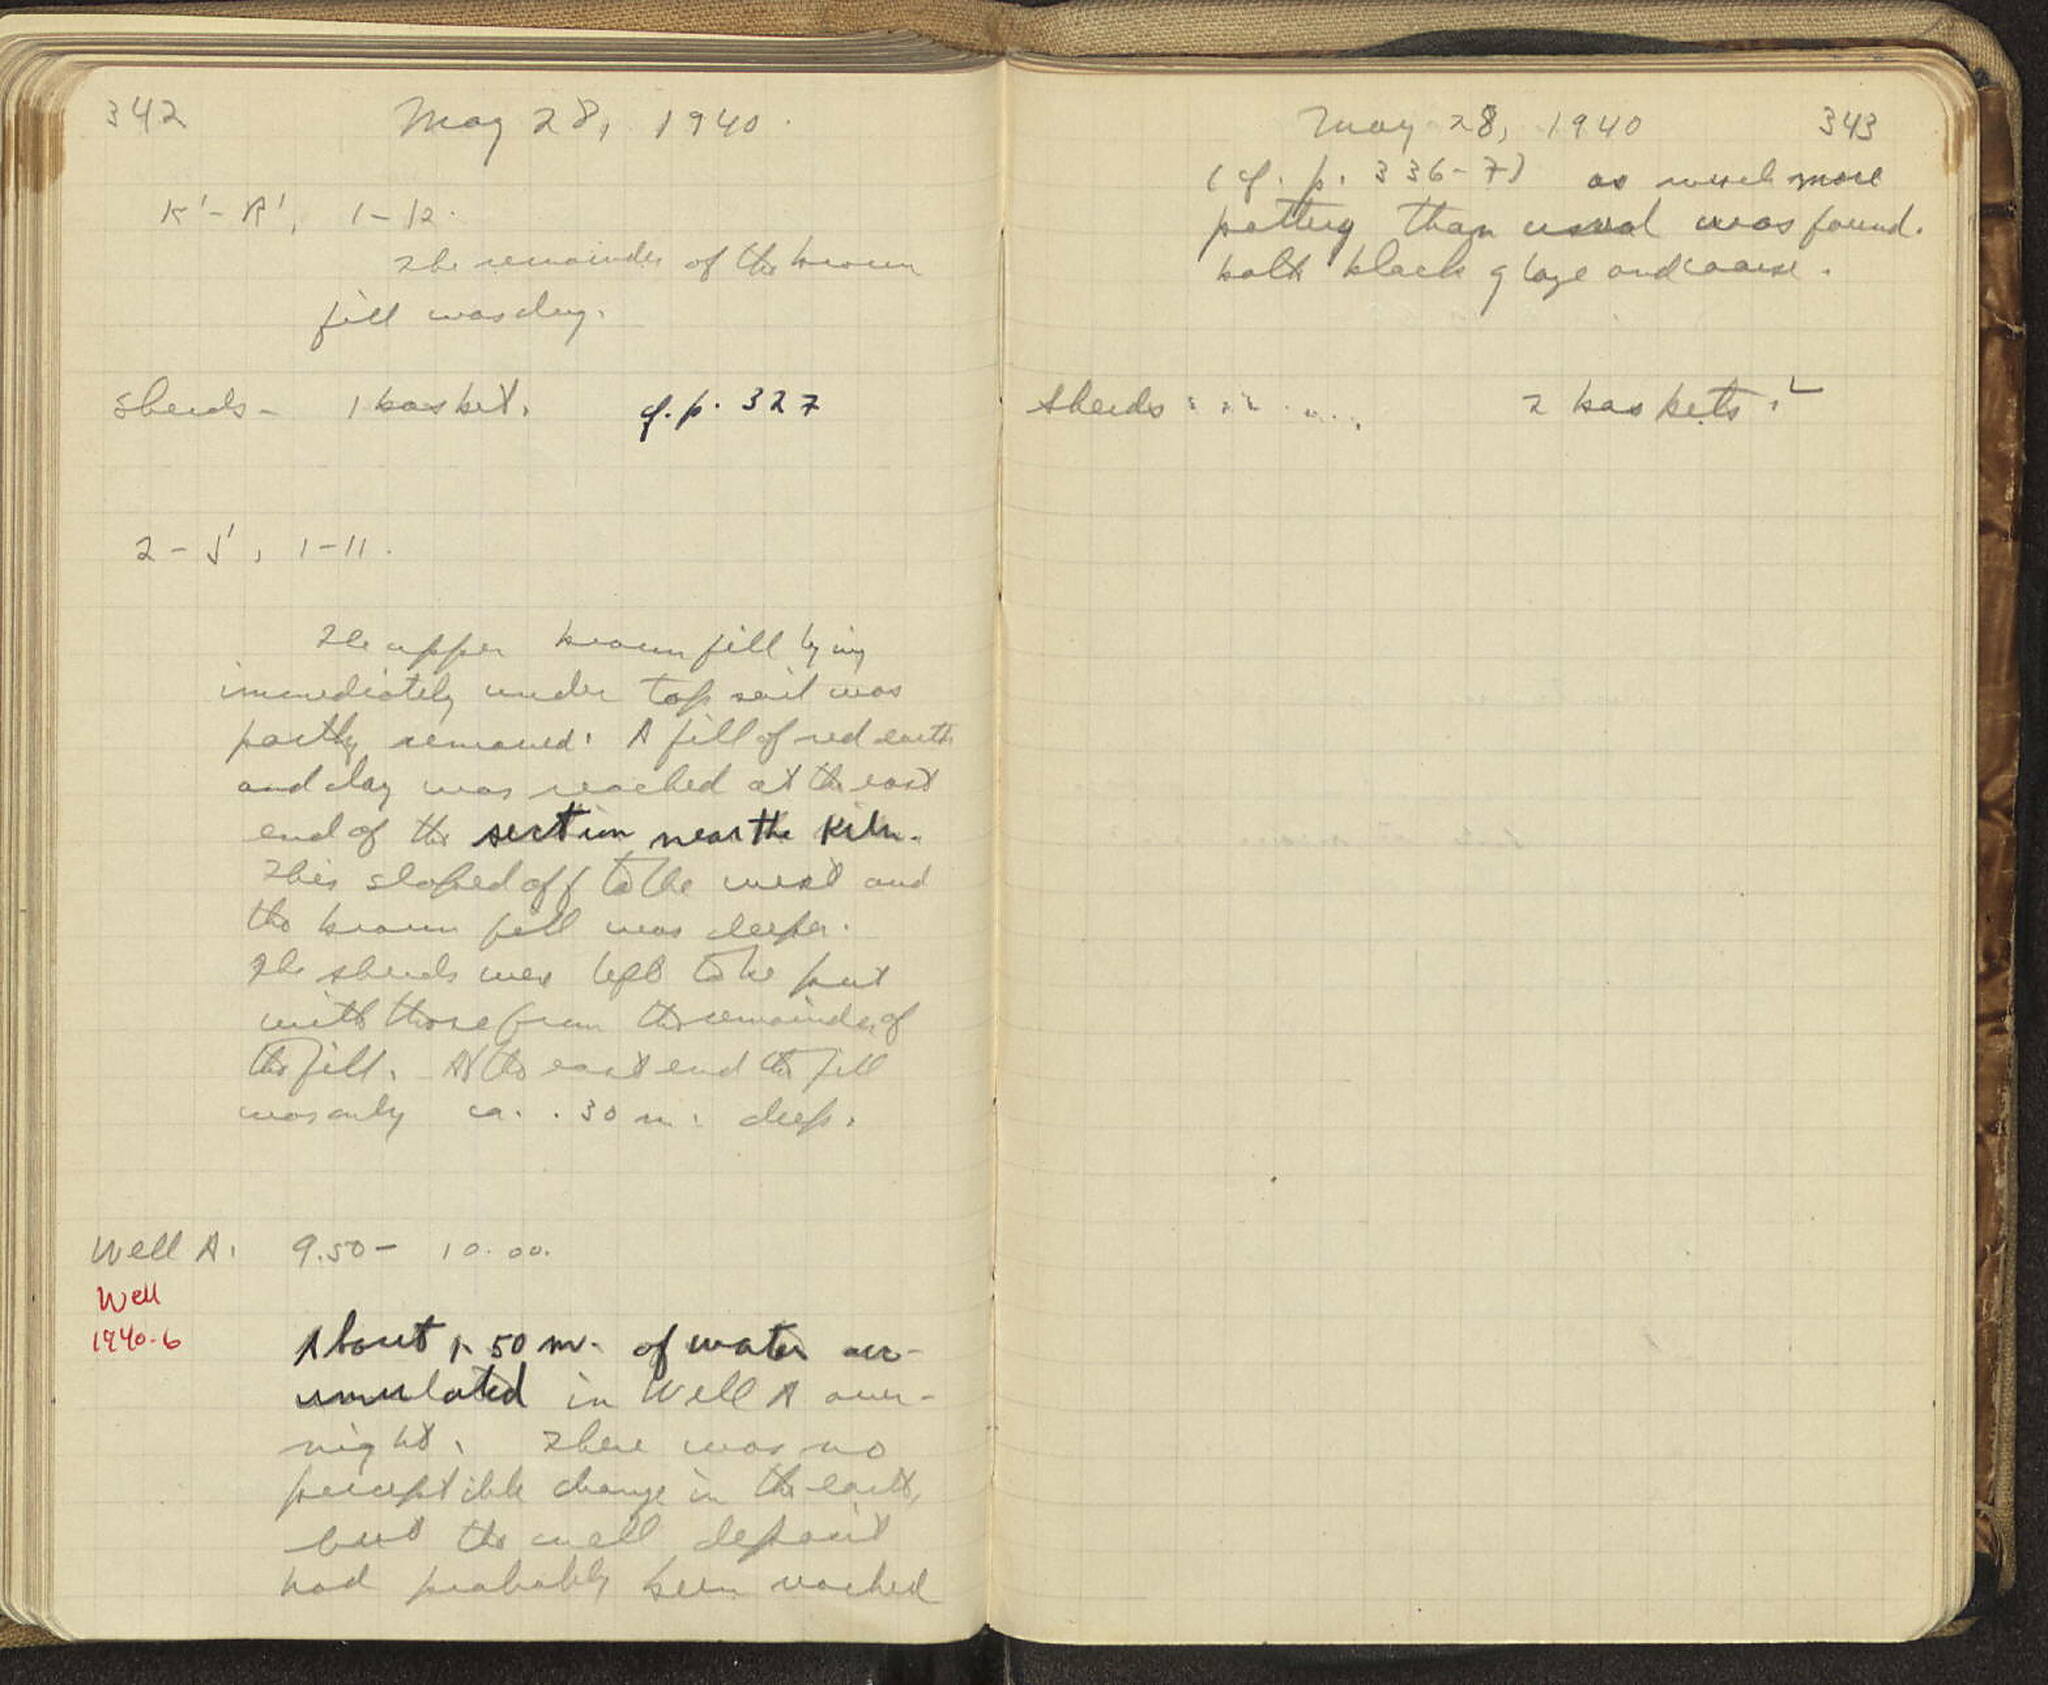 342
May 28, 1940.
K'-R', 1-12.
The remainder of the brown
fill was dug.
Sherds- 1 basket. cf. p. 327
2-J', 1-11.
The upper brown fill lying
immediately under top soil was
partly removed. A fill of red earth
and clay was reached at the east
end of the section near the kiln.
This sloped off to the west and
the brown fill was deeper.
The sherds were left to be put
with those from the remainder of
the fill. At the east end the fill
was only ca. .30 m. deep.
Well A. 9.50- 10.00.
Well
1940-6
About 1.50 m. of water acc-
umulated in Well A over-
night. There was no
perceptible change in the earth,
but the well deposit
had probably been reached
May 28, 1940 343
(cf. p. 336-7) as much more
pottery than usual was found.
both black glaze and coarse.
Sherds ........ 2 baskets.